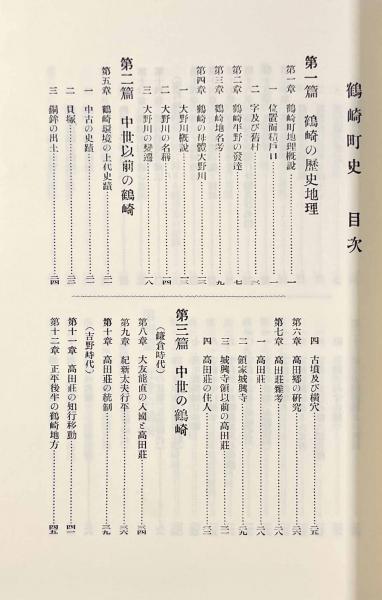 鶴崎町史　目次
第一篇　鶴崎の歴史地理
第一章　鶴崎町地理概説……一
一　位置面積戸口……一
二　字及び舊村……二
第二章　鶴崎平野の發達……七
第三章　鶴崎地名考……九
第四章　鶴崎の母體大野川……一三
一　大野川概説……一三
二　大野川の名稱……一四
三　大野川の變遷……一八
第二篇　中世以前の鶴崎
第五章　鶴崎環境の上代史蹟……二一
一　中古の史蹟……二一
二　貝塚……二三
三　銅鉾の出土……二四
四　古墳及び横穴……二五
第六章　高田郷の研究……二六
第七章　高田莊雜考……二八
一　高田莊……二八
二　領家城興寺……二九
三　城興寺領以前の高田莊……三一
四　高田莊の住人……三二
第三篇　中世の鶴崎
（鎌倉時代）
第八章　大友能直の入國と高田莊……三四
第九章　紀新太夫行平……三六
第十章　高田莊の統制……三九
（吉野時代）
第十一章　高田莊の知行移動……四二
第十二章　正平後半の鶴崎地方……四五